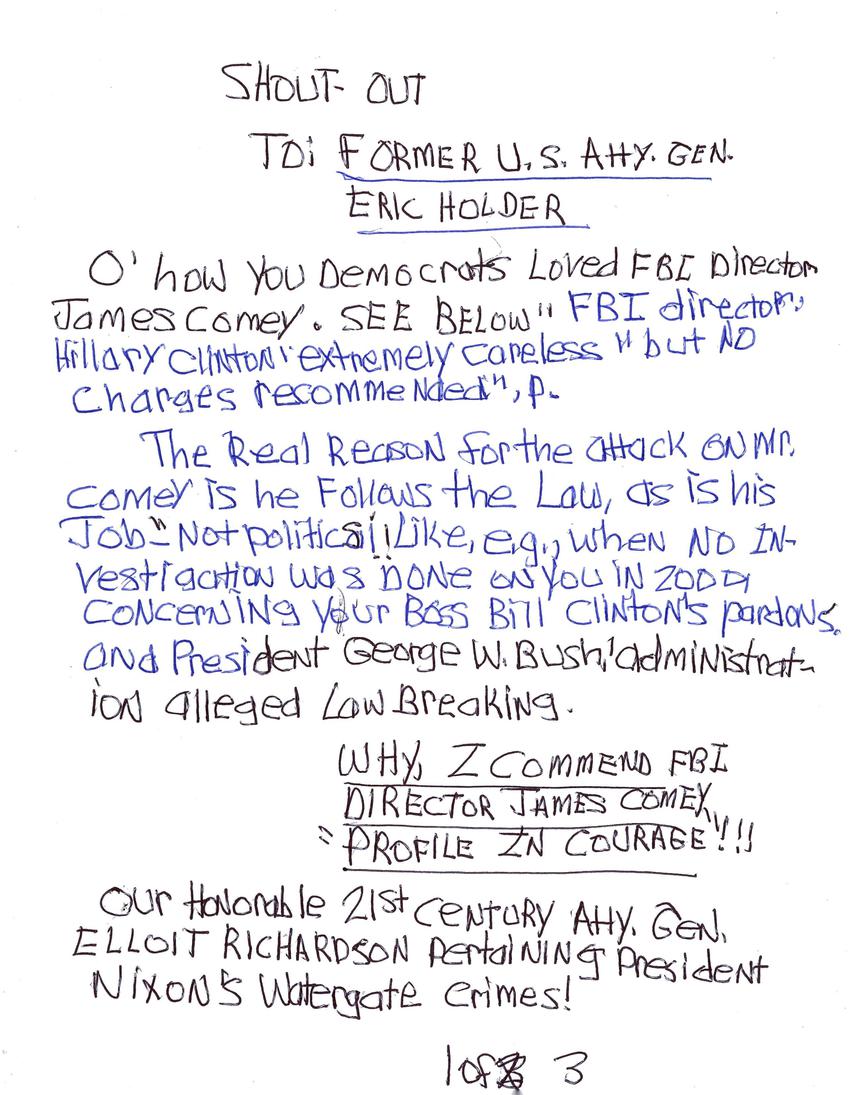 SHOUT- OUT
TO: FORMER U.S. Atty. GEN.
ERIC HOLDER
O' how you Democrats Loved FBI Director
James Comey. SEE BELOW" FBI director,
Hillary CLINTON 'extremely careless " but NO
Charges recommeNded", p.
The Real Reason for the attack ON Mr.
Comey is he Follows the Law, as is his
Job - Not politics!! Like, e.g., when NO IN-
vestigation was DONE on you IN
CONCERNING your Boss Bill CLINTON's pardons,
and President George W. Bush,' admiNistrat-
ion alleged Law Breaking.
WHY, I COMMEND FBI
DIRECTOR JAMES COMEY,
"PROFILE IN COURAGE"!!!
Our Honorable 21st CENTURY Atty. GEN.
ELLOIT RICHARDSON pertaiNINg President
NixoN's Watergate crimes!
1 of 3